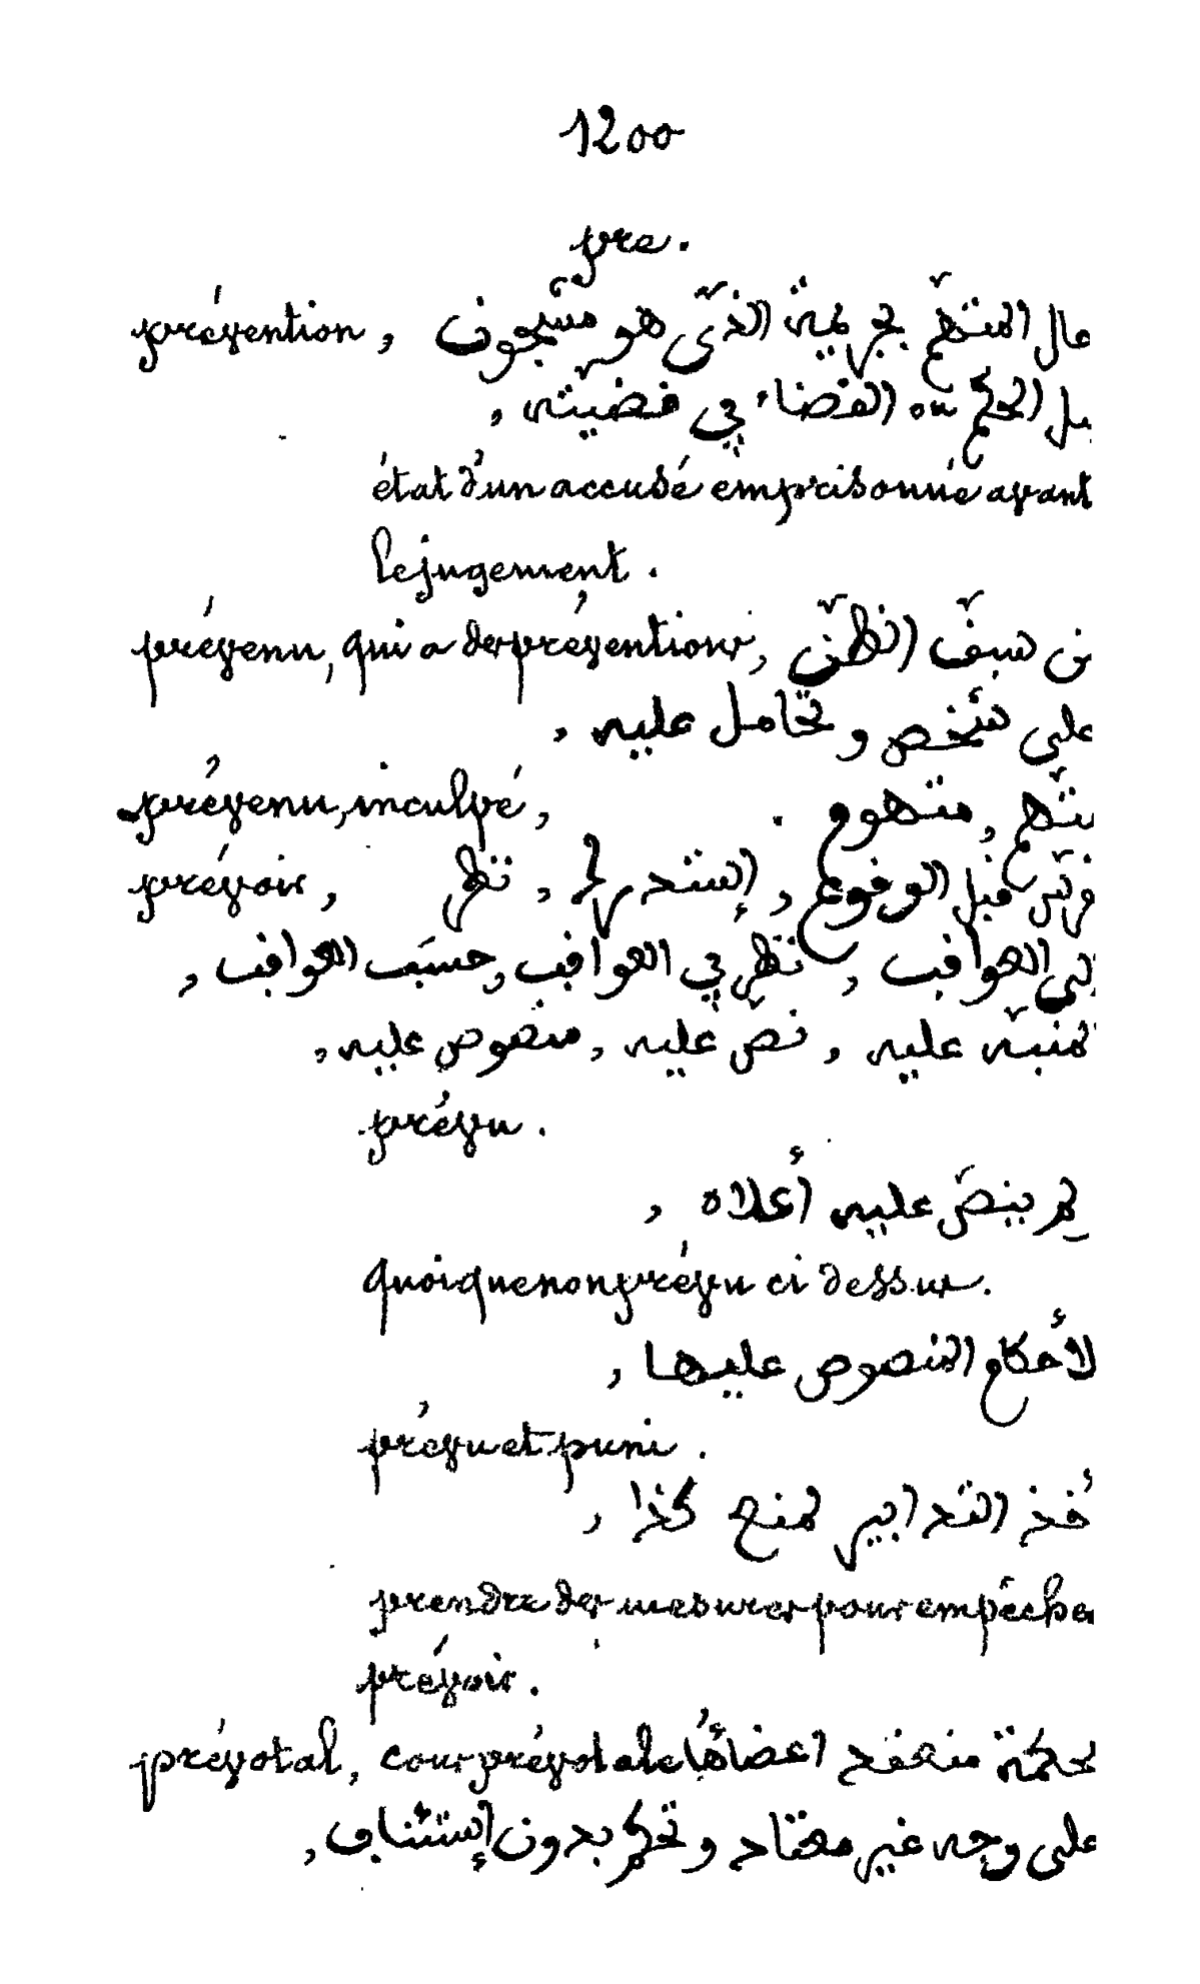 1200
pre.
prévention, حال المتهّم بجريمة الذّي هو مسجون
قبل الحكم من القضاء في قضيّته,
état d'un accusé emprisonné avant
le jugement.
prévenu, qui a des préventions, من سبقّ الظنّ
على شخص و تحامل عليه,
prévenu, inculpé, متّهم, متهوم.
prévoir, تفرّس قبل الوقوع, إستدرك, نظر
إلى العواقب, نظر في العواقب, حسَب العواقب,
المنبّه عليه, نصّ عليه, منصوص عليه,
prévu.
لم ينصّ عليه أعلاه,
quoique non prévu ci dessus.
الأحكام المنصوص عليها,
prévu et puni.
أخذ التدابير لمنع كذا,
prendre des mesures pour empêcher
prévoir.
prévotal, cour prévotale محكمة منعقد اعضاؤُها
على وجه غير معتاد و تحكم بدون إستئناف,